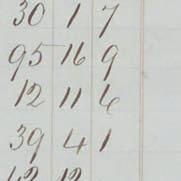 30 1 7
95 16 9
12 11 6
39 4 1
12